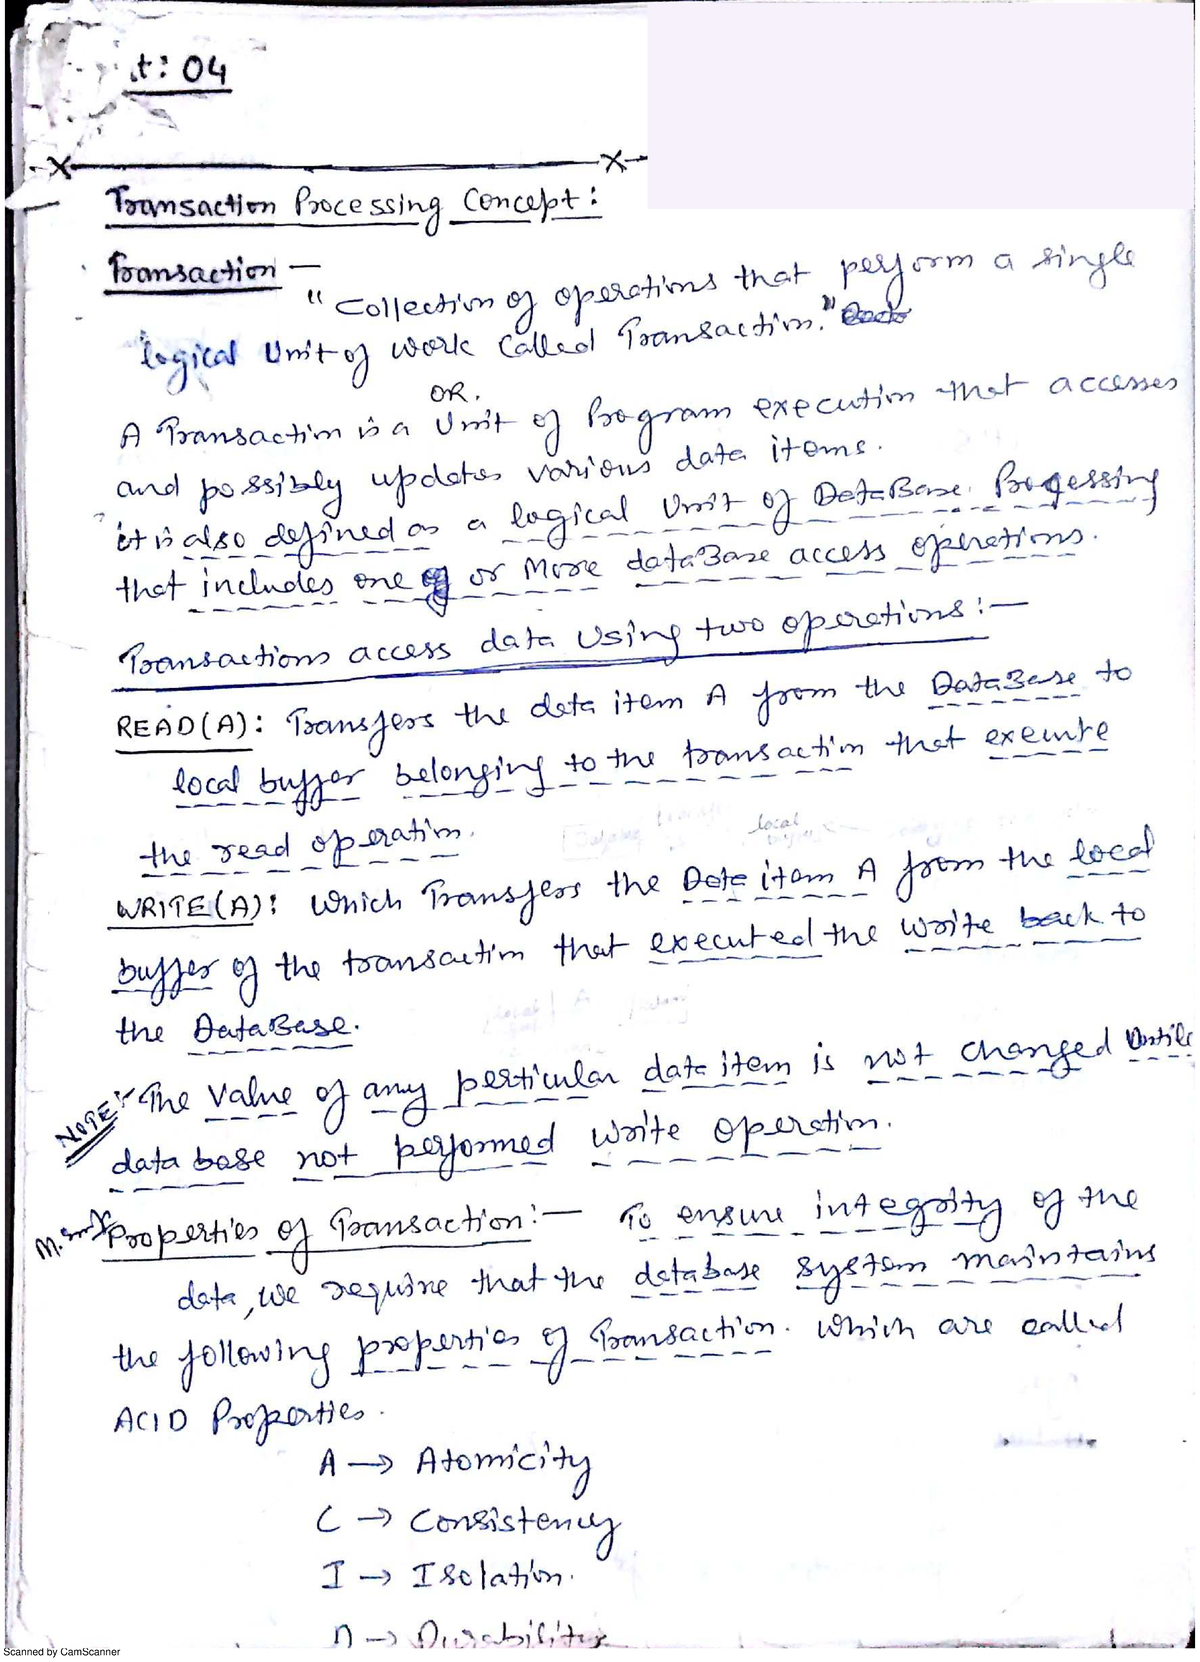 t: 04
Transaction Processing Concept:
Transaction —
"Collection of operations that perform a single
logical Unit of work called Transaction."
OR.
A Transaction is a Unit of Program execution that accesses
and possibly updates various data items.
it is also defined as a logical Unit of DataBase Processing
that includes one or More dataBase access operations.
Transactions access data Using two operations:—
READ(A): Transfers the data item A from the DataBase to
local buffer belonging to the transaction that execute
the read operation.
WRITE(A): Which Transfers the Data item A from the local
buffer of the transaction that executed the write back to
the DataBase.
NOTE:- The Value of any perticular data item is not changed Untile
data base not performed write operation.
Properties of Transaction:— To ensure integrity of the
data, We require that the database system maintains
the following properties of Transaction. Which are called
ACID Properties.
A → Atomicity
C → Consistency
I → Isolation.
D → Durability
Scanned by CamScanner